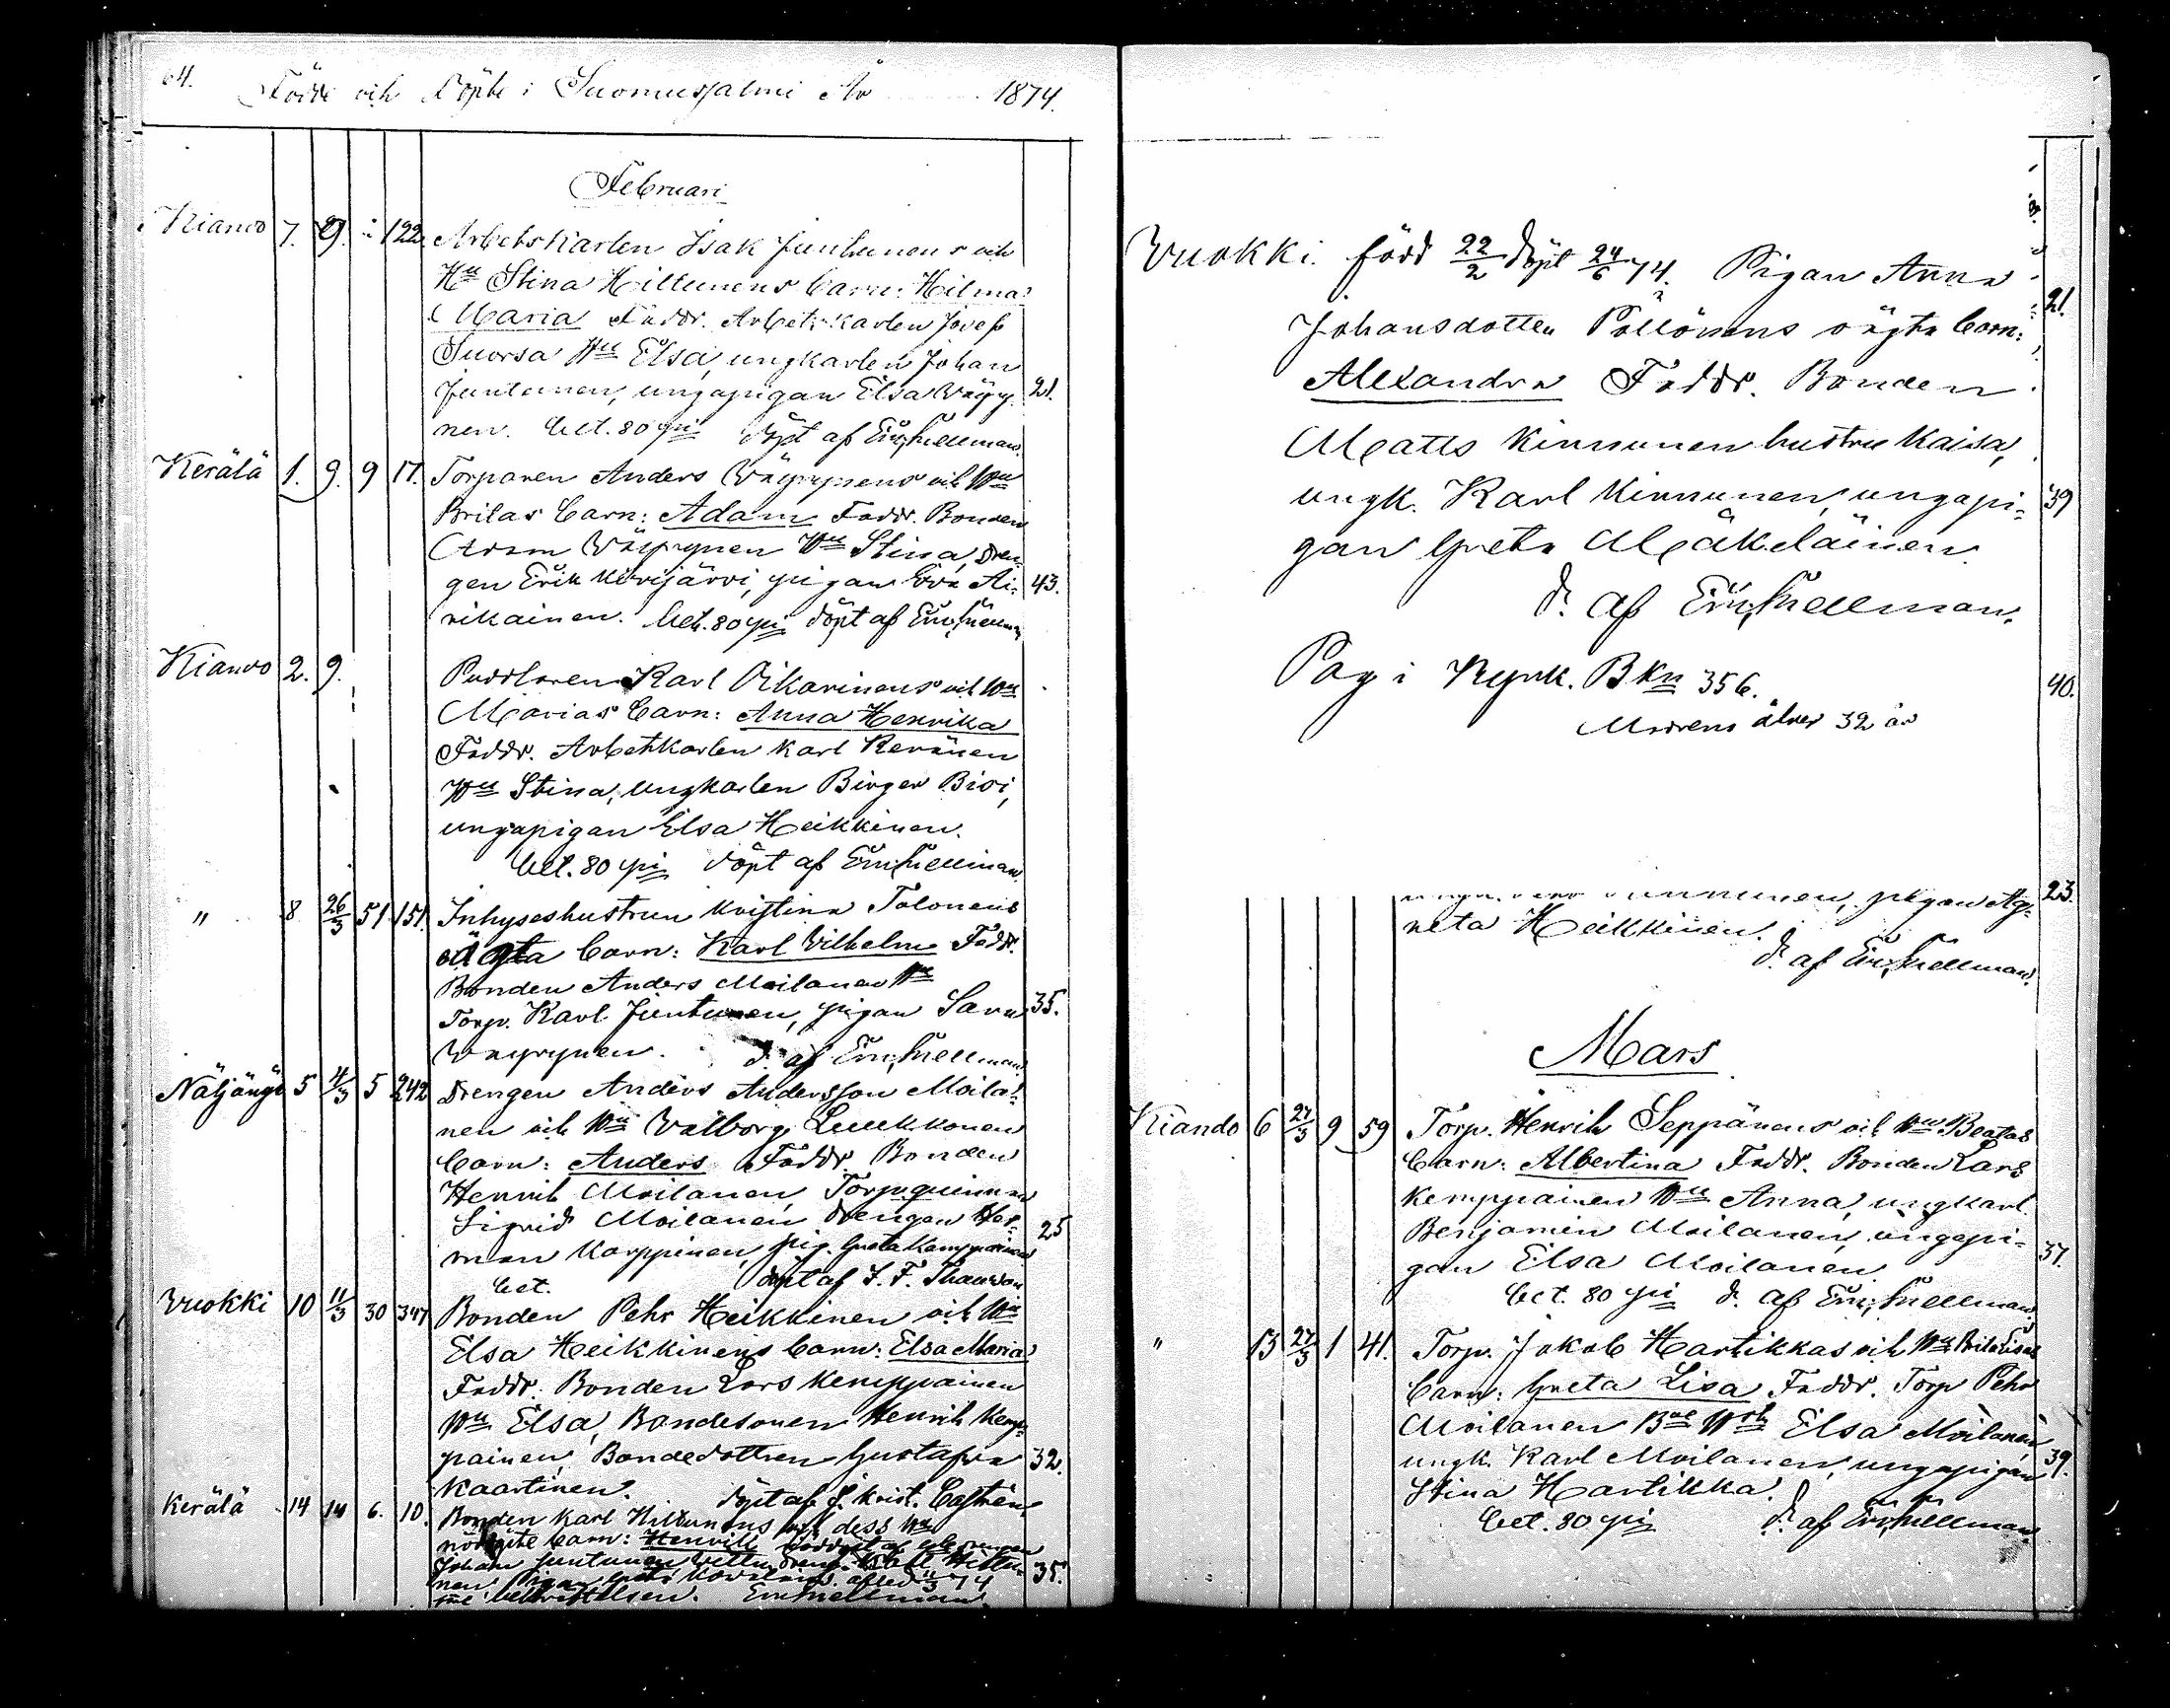 64. Födde och Döpte i Suomussalmi År 1874.
Februari
Kiando 7. 9. 122. Arbetskarlen Isak Juntunens och
Hu Stina Hiltunens barn: Hilma
Maria Faddr. Arbetskarlen Josef
Suorsa Hu Elsa, ungkarlen Johan
Juntunen, ungapigan Elsa Väyry- 21.
nen. bet. 80 pi döpt af Em. Snellman.
Kerälä 1. 9. 9 17. Torparen Anders Väyrynens och Hu
Britas barn: Adam Faddr. Bonden
Adam Väyrynen Hu Stina, dren-
gen Erik Kivijärvi, pigan Eva Ai- 43.
rikainen. bet. 80 pi döpt af Em. Snellman
Kiando 2. 9. Karl Oikarinens och Hu
Marias barn: Anna Henrika
Faddr. Arbetskarlen Karl Keränen
Hu Stina, ungkarlen Birger Bisi,
ungapigan Elsa Heikkinen.
bet. 80 pi döpt af Em. Snellman.
" 8 26/3 51 151. Inhyseshustrun Kristina Tolonens
oägta barn: Karl Wilhelm Faddr.
Bonden Anders Moilanen Hu
Torp. Karl Juntunen, pigan Sara 35.
Wäyrynen. d. af Em. Snellman.
Näljänge 5 4/3 5 242 Drengen Anders Andersson Moila-
nen och Hu Walborg Luukkonen
barn: Anders Faddr. Bonden
Henrik Moilanen, Torp.quinnan
Sigrid Moilanen, drengen Her- 25
man Karppinen, pig. Greta Kemppainen
bet. döpt af J. F. Thauvón
Vuokki 10 11/3 30 347 Bonden Pehr Heikkinen och Hu
Elsa Heikkinens barn: Elsa Maria
Faddr. Bonden Lars Kemppainen
Hu Elsa, Bondesonen Henrik Kemp-
painen, Bondedottren Gustafva 32.
Kaartinen. döpt af J. Krist. Castrén,
Kerälä 14 14 6. 10. Bonden Karl Hiltunens och dess Hu
nödögte barn: Henrik
Johan Juntunen Hiltu- 35.
nen, Pigan Greta 11/3 74
Em. Snellman.
Vuokki. född 22/2 döpt 24/6 74. Pigan Anna
Johansdotter Pöllönens oägta barn: 21.
Alexandra Faddr. Bonden
Matts Kinnunen hustru Kaisa,
ungk. Karl Kinnunen, ungapi- 39
gan Greta Mäkeläinen.
d. af Em. Snellman.
Pag i Kyrk. Bkn 356. 40.
Modrens ålder 32 år
pigan Ag- 23.
neta Heikkinen.
d. af Em. Snellman.
Mars
Kiando 6 27/3 9 59 Torp. Henrik Seppänens och Hu Beatas
barn: Albertina Faddr. Bonden Lars
Kemppainen Hu Anna, ungkarl.
Benjamin Moilanen, ungapi- 37.
gan Elsa Moilanen
bet. 80 pi d. af Em. Snellman.
" 13 27/3 1 41. Torp. Jakob Hartikkas och Hu Brita Lisas
barn: Greta Lisa Faddr. Torp Pehr
Moilanen Elsa Moilanen,
ungk. Karl Moilanen, ungapigan 39.
Stina Hartikka.
bet. 80 pi d. af Em. Snellman.